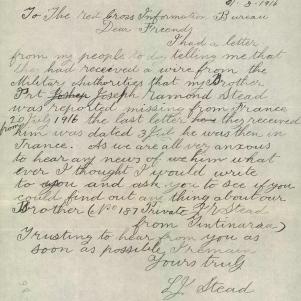 3/ - 8 - 1916
To The red Cross Information Bureau
Dear Friends
I had a letter
from my people to dy telling me that
they had received a wire from the
Military Authorities that my Brother
Prt Joseph Ramond Stead
was reported missing from France
20 July 1916 the last letter they received
from him was dated 3 Jul he was then in
France. As we are all very anxious
to hear any news of him what
ever I thought I would write
to you and ask you to see if you
could find out any thing about our
Brother (No 187 Private J R Stead
from Tintinara)
Trusting to hear from you as
soon as possible I remain
Yours truly
Stead